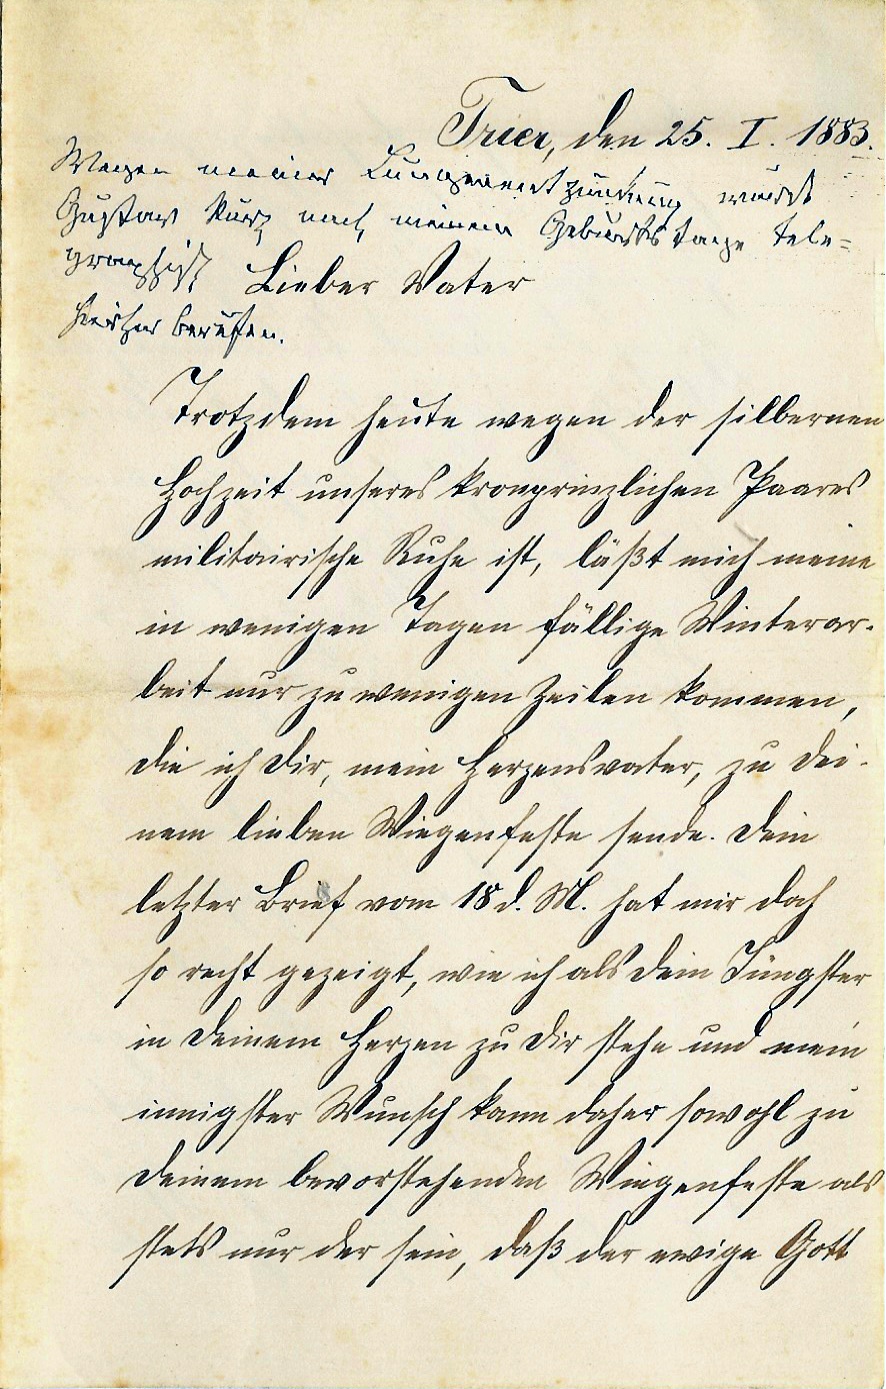 Trier, den 25. I. 1883.
Wegen meiner Lungenentzündung wurde
Gustav kurz nach meinem Geburtstage tele=
graphisch
hierher berufen.
Lieber Vater
Trotzdem heute wegen der silbernen
Hochzeit unseres kronprinzlichen Paares
militairische Ruhe ist, läßt mich meine
in wenigen Tagen fällige Winterar-
beit nur zu wenigen Zeilen kommen,
die ich Dir, mein Herzensvater, zu Dei-
nem lieben Wiegenfeste sende. Dein
letzter Brief vom 18 d. M. hat mir doch
so recht gezeigt, wie ich als Dein Jüngster
in Deinem Herzen zu Dir stehe und mein
innigster Wunsch kann daher sowohl zu
Deinem bevorstehenden Wiegenfeste als
stets nur der sein, daß der ewige Gott